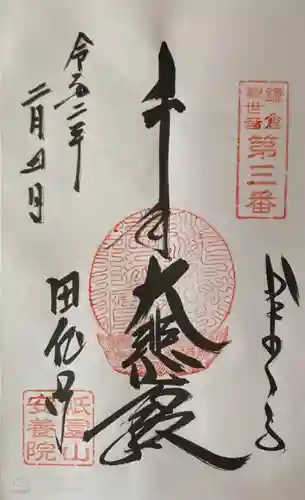 鎌倉
観世音
第三番
かまくら
千手
大悲殿
令和二年
二月四日
田代
山
安養院